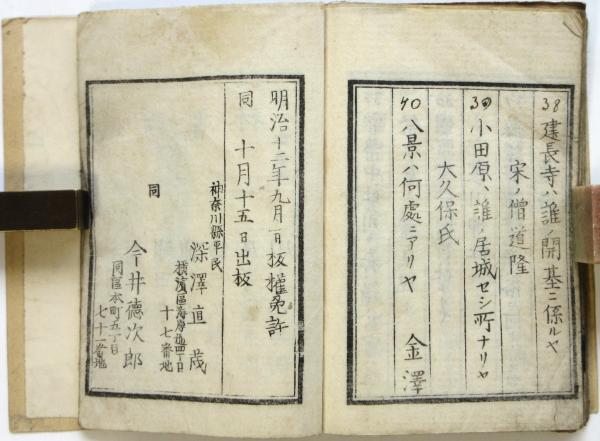 38 建長寺ハ誰ノ開基ニ係ルヤ
宋ノ僧道隆
39 小田原ハ誰ノ居城セシ所ナリヤ
大久保氏
40 八景ハ何處ニアリヤ 金澤
明治十二年九月一日板權免許
同 十月十五日出板
神奈川縣平民
深澤直茂
横濱區海岸四丁目
十七番地
同
今井德次郎
同區本町五丁目
七十一番地